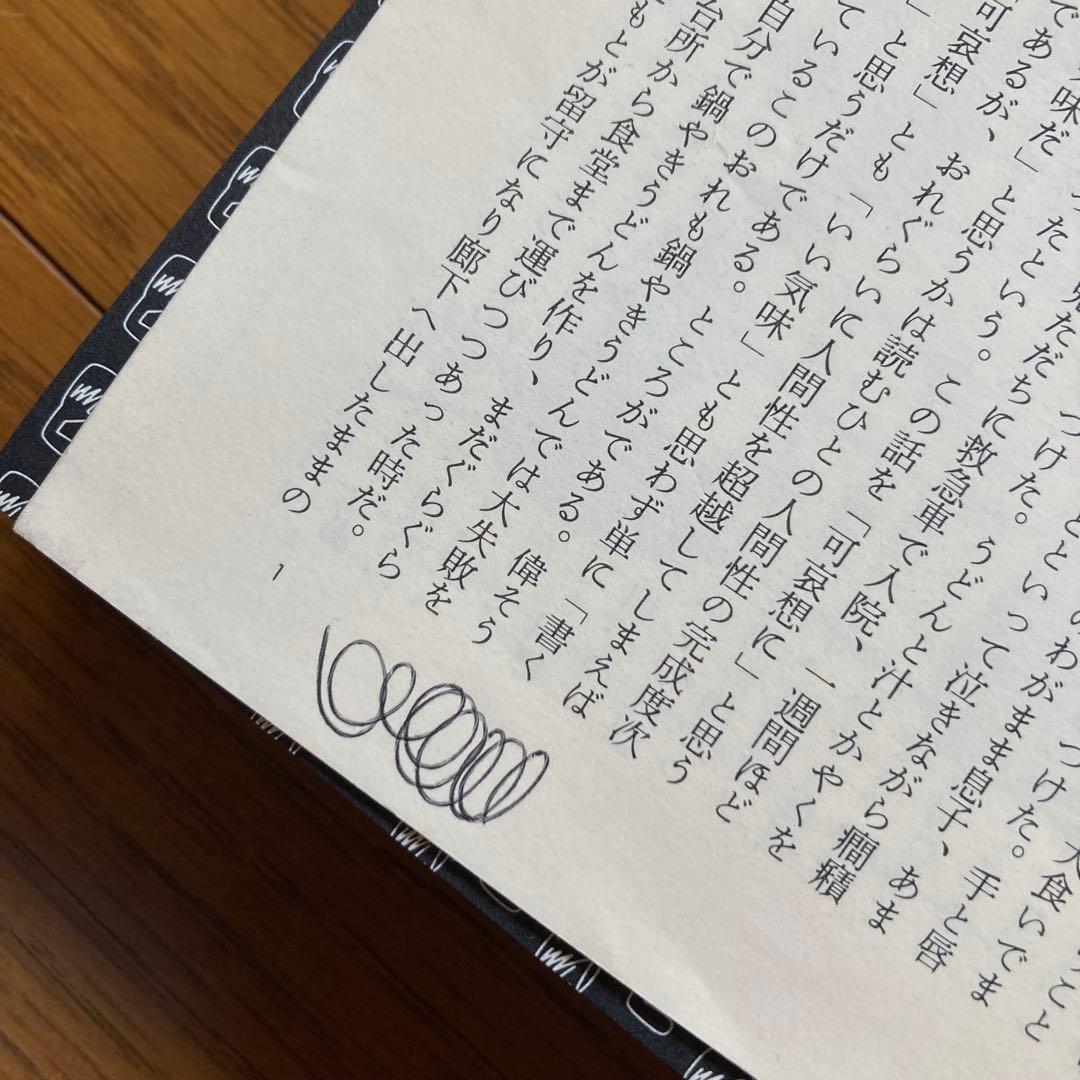 こと
食いでま
つけた。 手と唇
のわがまま息子、 あま
といって泣きながら癇癪
つけた。 うどんと汁とかやくを
ただちに救急車で入院、一週間ほど
たという。 この話を「可哀想に」と思う
味だ」と思うかは読むひとの人間性の完成度次
であるが、おれぐらいに人間性を超越してしまえば
可哀想」とも「いい気味」とも思わず単に「書く
」と思うだけである。 ところがである。 偉そう
ているこのおれも鍋やきうどんでは大失敗を
自分で鍋やきうどんを作り、 まだぐらぐら
台所から食堂まで運びつつあった時だ。
もとが留守になり廊下へ出したままの
1